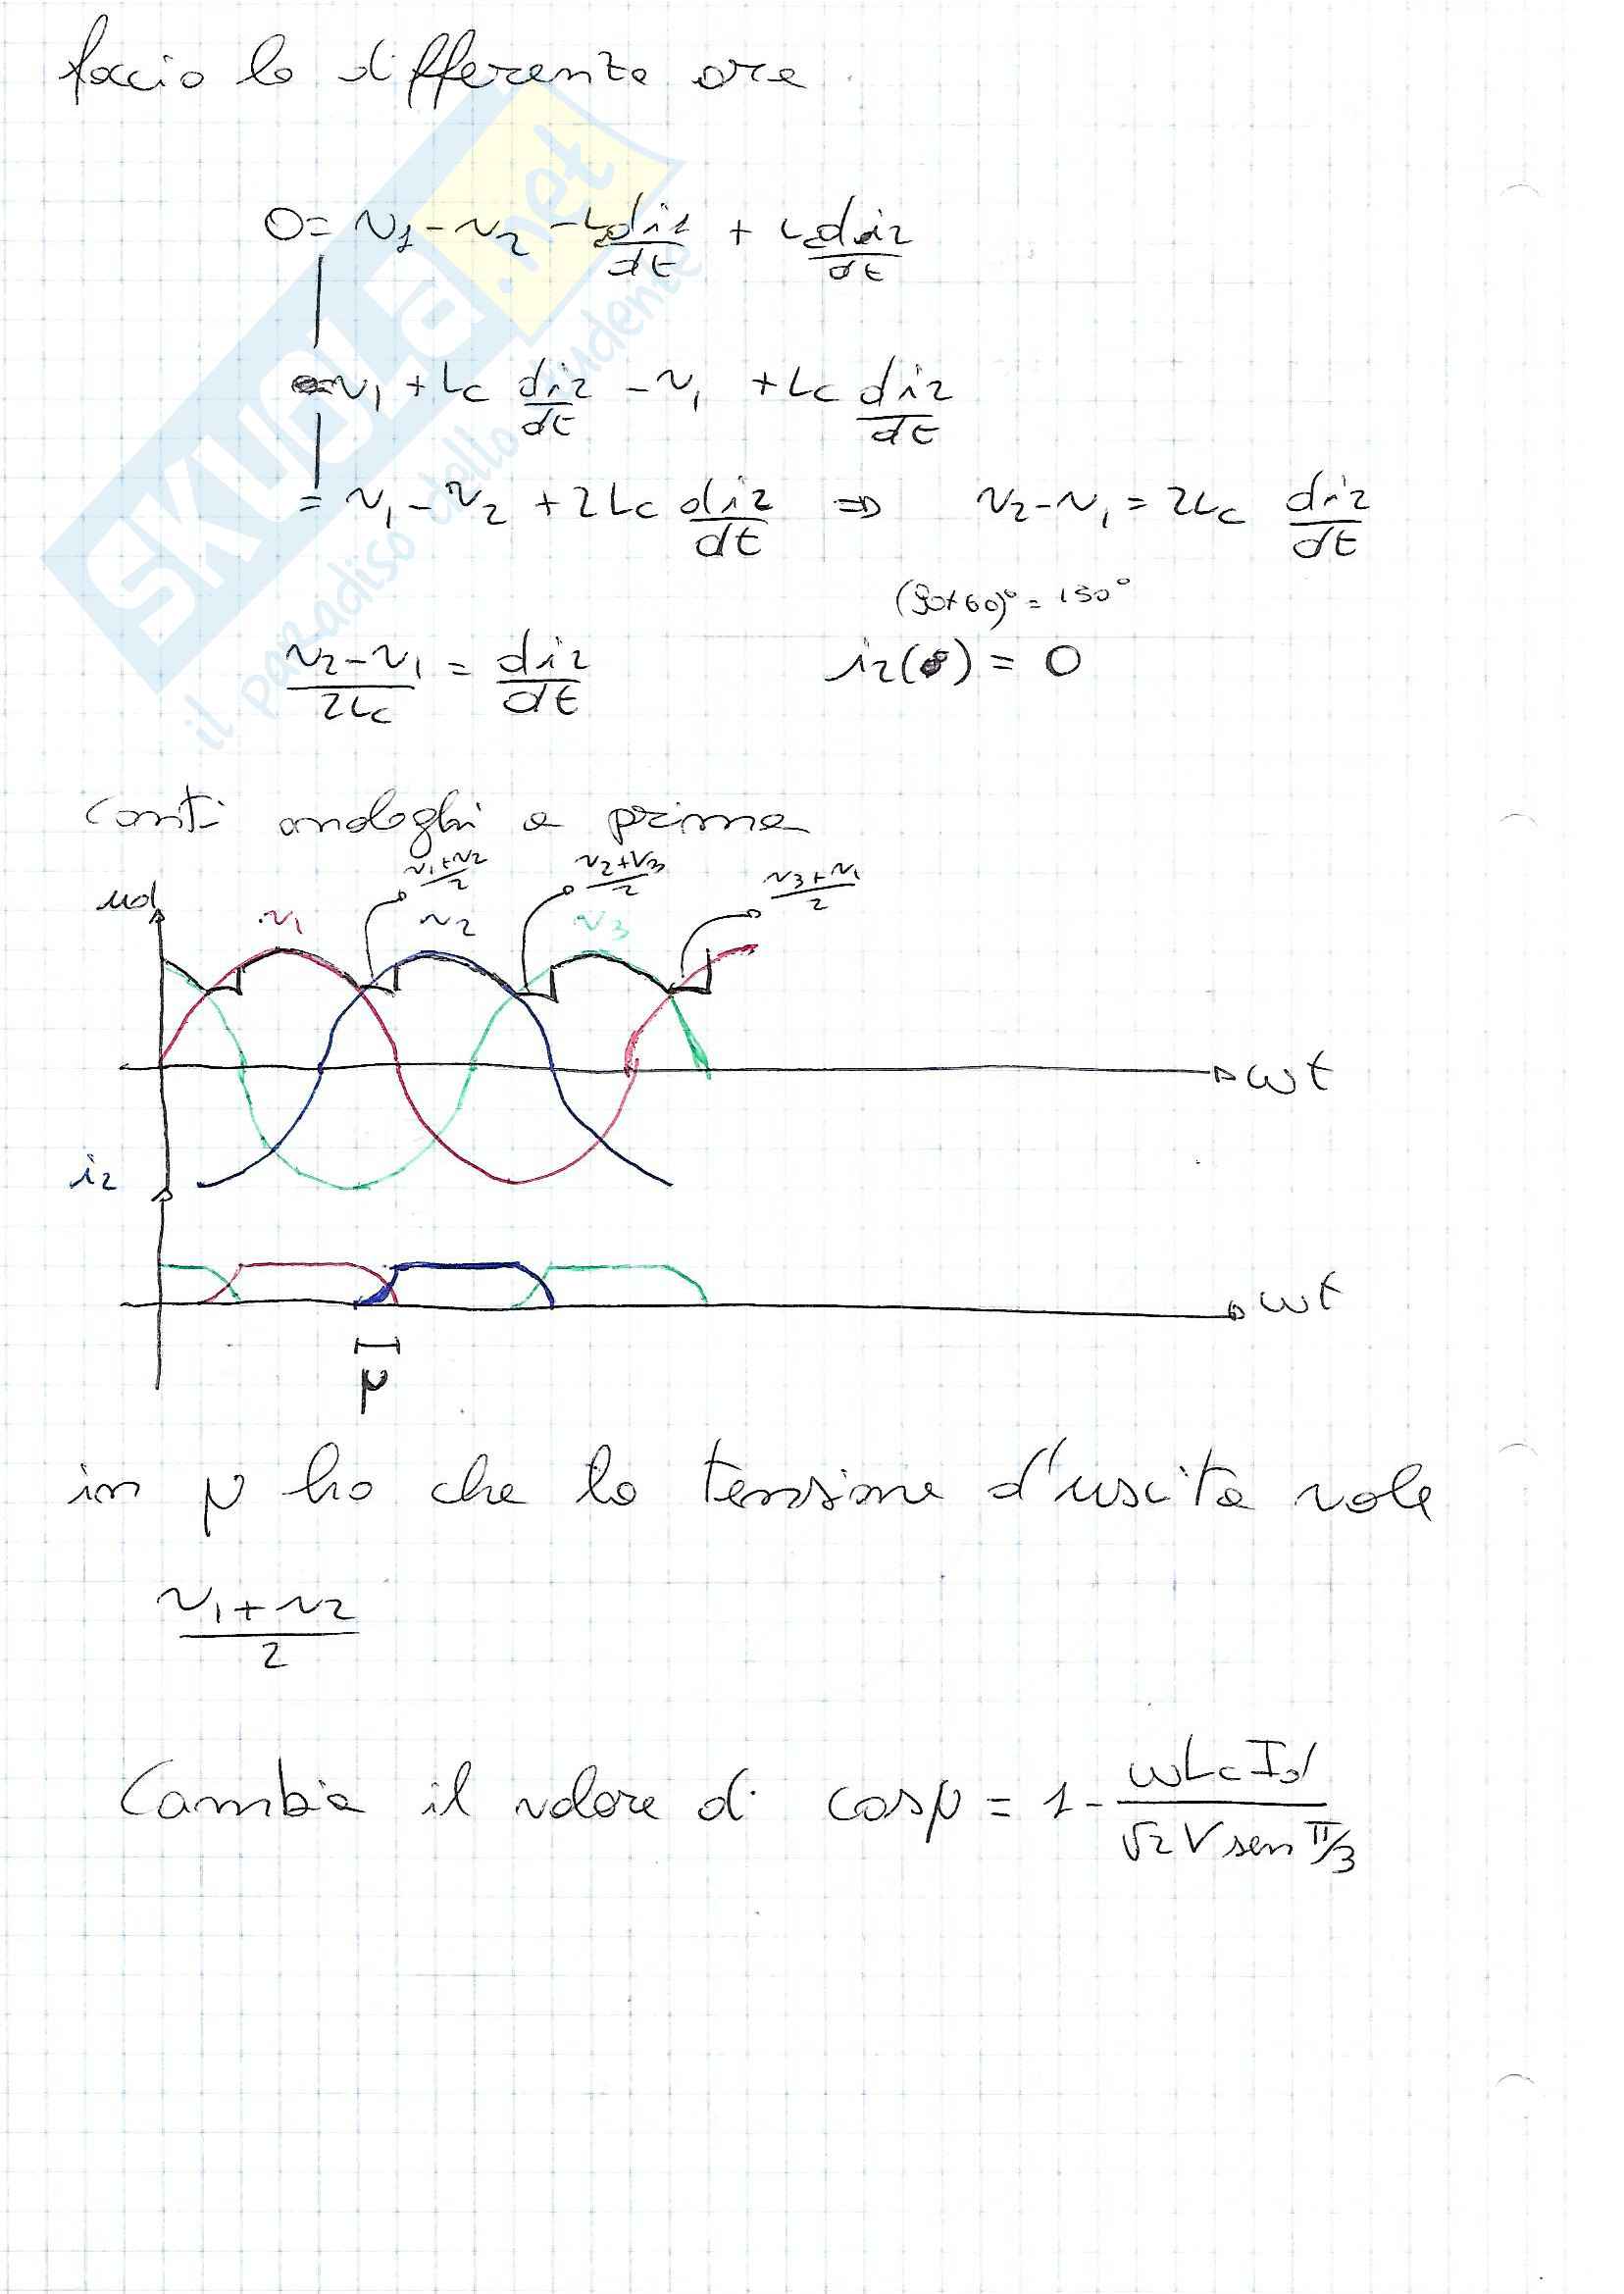 faccio la differenza ora
0 = v1 - v2 - Lc di1/dt + Lc di2/dt
= v1 + Lc di2/dt - v1 + Lc di2/dt
= v1 - v2 + 2Lc di2/dt ⇒ v2 - v1 = 2Lc di2/dt
(90+60)° = 150°
(v2 - v1)/2Lc = di2/dt i2( ) = 0
conti analoghi a prima
(v1+v2)/2 (v2+v3)/2 (v3+v1)/2
ud v1 v2 v3
ωt
i2
ωt
μ
in μ ho che la tensione d'uscita vale
(v1+v2)/2
Cambia il valore di cosμ = 1 - ωLcId/(√2 V sen π/3)
SKUOLA.net
il paradiso dello studente